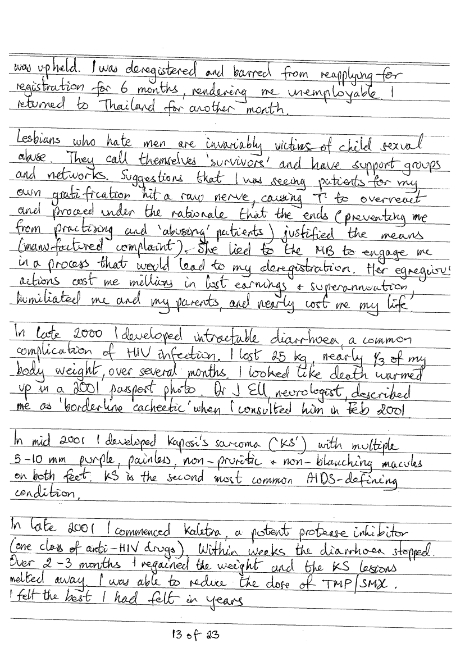 was upheld. I was deregistered and barred from reapplying for
registration for 6 months, rendering me unemployable. I
returned to Thailand for another month.
Lesbians who hate men are invariably victims of child sexual
abuse. They call themselves 'survivors' and have support groups
and networks. Suggestions that I was seeing patients for my
own gratification hit a raw nerve, causing T to overreact
and proceed under the rationale that the ends (preventing me
from practising and 'abusing' patients) justified the means
(manufactured complaint). She lied to the MB to engage me
in a process that would lead to my deregistration. Her egregious
actions cost me millions in lost earnings + superannuation,
humiliated me and my parents, and nearly cost me my life
In late 2000 I developed intractable diarrhoea, a common
complication of HIV infection. I lost 25 kg, nearly 1/3 of my
body weight, over several months. I looked like death warmed
up in a 2001 passport photo. Dr J Ell, neurologist, described
me as 'borderline cachectic' when I consulted him in Feb 2001
In mid 2001 I developed Kaposi's sarcoma ('KS') with multiple
5-10 mm purple, painless, non-pruritic + non-blanching macules
on both feet. KS is the second most common AIDS-defining
condition.
In late 2001 I commenced Kaletra, a potent protease inhibitor
(one class of anti-HIV drugs). Within weeks the diarrhoea stopped.
Over 2-3 months I regained the weight and the KS lesions
melted away. I was able to reduce the dose of TMP/SMX.
I felt the best I had felt in years
13 of 23